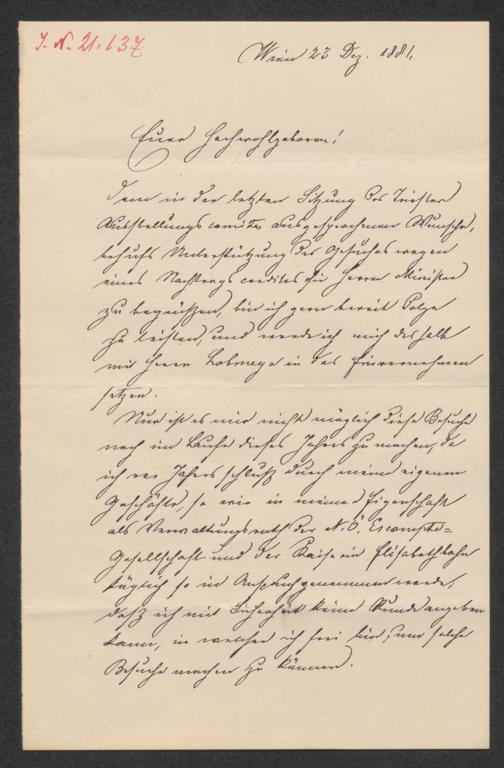 J. N. 21.137
Wien 23 Dez. 1881.
Euer Hochwohlgeboren!
Dem in der letzten Sitzung des Triester
Ausstellungscomites ausgesprochenen Wunsche,
behufs Unterstützung des Gesuches wegen
eines Nachtragscredites die Herrn Minister
zu begrüssen, bin ich gern bereit Folge
zu leisten, und werde ich mich deshalb
mit Herrn Lobmeyr in das Einvernehmen
setzen.
Nur ist es mir nicht möglich diese Besuche
noch im Laufe dieses Jahres zu machen, da
ich vor Jahresschluß durch meine eigenen
Geschäfte, so wie in meiner Eigenschaft
als Verwaltungsrath der N. Ö. Escompte-
Gesellschaft und der Kaiserin Elisabethbahn
täglich so in Anspruch genommen werde,
daß ich mit Sicherheit keine Stunde angeben
kann, in welcher ich frei bin, um solche
Besuche machen zu können.